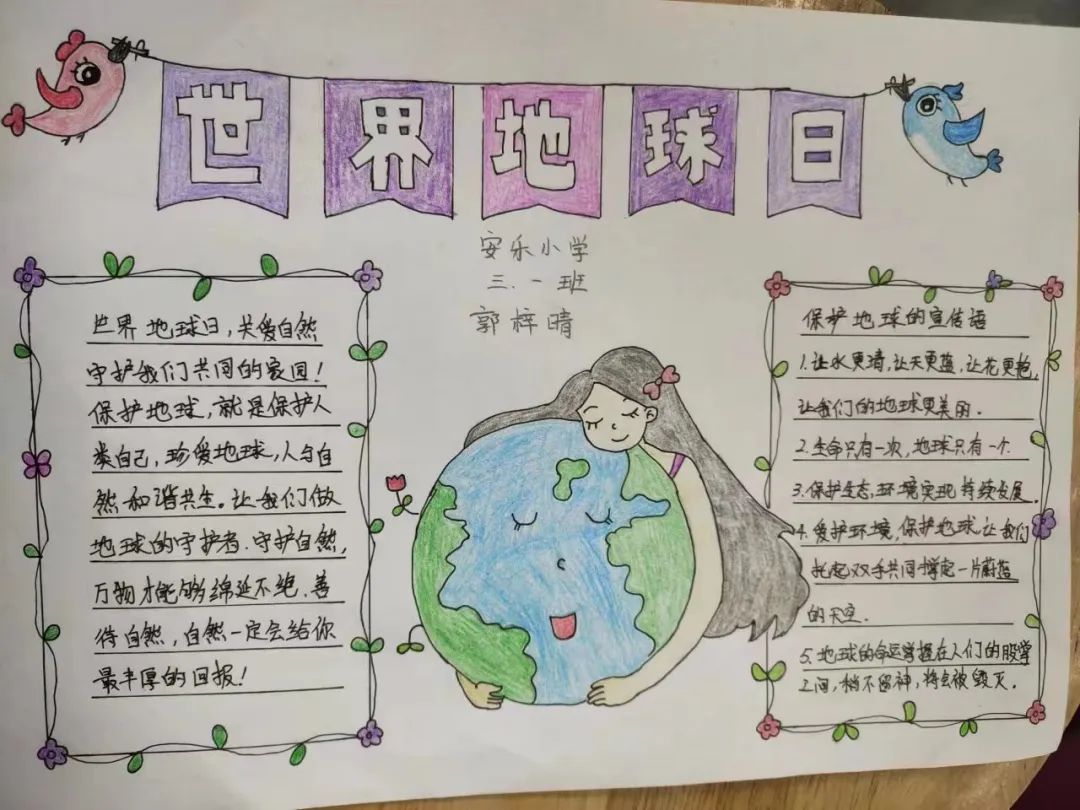 世界地球日
安乐小学
三.一班
郭梓晴
世界地球日，关爱自然
守护我们共同的家园！
保护地球，就是保护人
类自己，珍爱地球，人与自
然和谐共生。让我们做
地球的守护者.守护自然，
万物才能够绵延不绝.善
待自然，自然一定会给你
最丰厚的回报！
保护地球的宣传语
1.让水更清，让天更蓝，让花更艳，
让我们的地球更美丽.
2.生命只有一次，地球只有一个.
3.保护生态，环境实现持续发展.
4.爱护环境，保护地球，让我们
托起双手共同撑起一片蔚蓝
的天空.
5.地球的命运掌握在人们的股掌
之间，稍不留神，将会被毁灭.